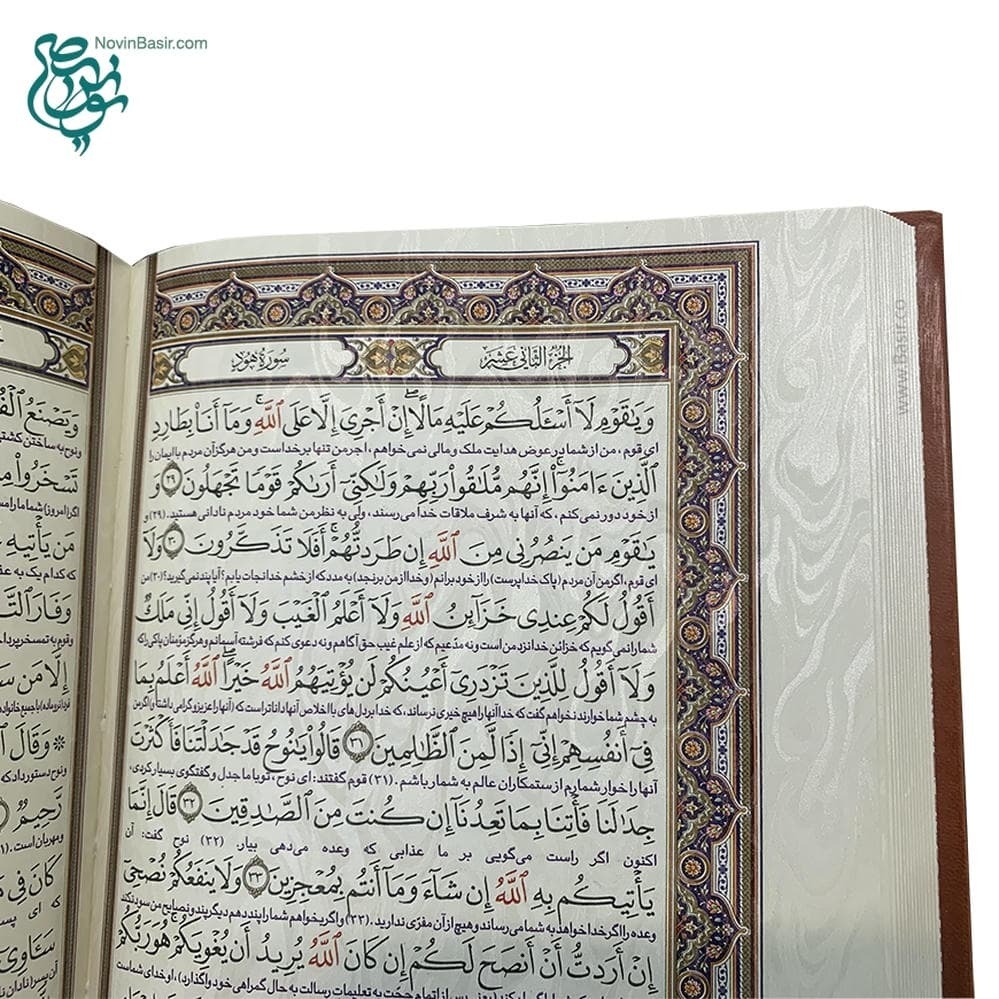 NovinBasir.com
www.Basir.co
الجزء الثانی عشر
سورة هود
وَيَٰقَوْمِ لَآ أَسْـَٔلُكُمْ عَلَيْهِ مَالًا ۖ إِنْ أَجْرِىَ إِلَّا عَلَى ٱللَّهِ ۚ وَمَآ أَنَا۠ بِطَارِدِ
ای قوم، من از شما بر عوض هدایت ملک و مالی نمی‌خواهم، اجر من تنها بر خداست و من هرگز آن مردم با ایمان را
ٱلَّذِينَ ءَامَنُوٓا۟ ۚ إِنَّهُم مُّلَٰقُوا۟ رَبِّهِمْ وَلَٰكِنِّىٓ أَرَىٰكُمْ قَوْمًا تَجْهَلُونَ ٢٩ وَ
از خود دور نمی‌کنم، که آنها به شرف ملاقات خدا می‌رسند، ولی به نظر من شما خود مردم نادانی هستید. (۲۹) و
يَٰقَوْمِ مَن يَنصُرُنِى مِنَ ٱللَّهِ إِن طَرَدتُّهُمْ ۚ أَفَلَا تَذَكَّرُونَ ٣٠ وَلَآ
ای قوم، اگر من آن مردم (پاک خداپرست) را از خود برانم (و خدا از من برنجد) به مدد که از خشم خدا نجات یابم؟ آیا پند نمی‌گیرید؟ (۳۰) من
أَقُولُ لَكُمْ عِندِى خَزَآئِنُ ٱللَّهِ وَلَآ أَعْلَمُ ٱلْغَيْبَ وَلَآ أَقُولُ إِنِّى مَلَكٌ
شما را نمی‌گویم که خزائن خدا نزد من است و نه مدّعیم که از علم غیب حق آگاهم و نه دعوی کنم که فرشته آسمانم و هرگز مؤمنان پاکی را که
وَلَآ أَقُولُ لِلَّذِينَ تَزْدَرِىٓ أَعْيُنُكُمْ لَن يُؤْتِيَهُمُ ٱللَّهُ خَيْرًا ۖ ٱللَّهُ أَعْلَمُ بِمَا
به چشم شما خوارند نخواهم گفت که خدا آنها را هیچ خیری نرساند، که خدا بر دل‌های با اخلاص آنها داناتر است (که آنها را عزیز و گرامی داشته) و اگر من
فِىٓ أَنفُسِهِمْ ۖ إِنِّىٓ إِذًا لَّمِنَ ٱلظَّٰلِمِينَ ٣١ قَالُوا۟ يَٰنُوحُ قَدْ جَٰدَلْتَنَا فَأَكْثَرْتَ
آنها را خوار شمارم از ستمکاران عالم به شمار باشم. (۳۱) قوم گفتند: ای نوح، تو با ما جدل و گفتگوی بسیار کردی،
جِدَٰلَنَا فَأْتِنَا بِمَا تَعِدُنَآ إِن كُنتَ مِنَ ٱلصَّٰدِقِينَ ٣٢ قَالَ إِنَّمَا
اکنون اگر راست می‌گویی بر ما عذابی که وعده می‌دهی بیار. (۳۲) نوح گفت: آن
يَأْتِيكُم بِهِ ٱللَّهُ إِن شَآءَ وَمَآ أَنتُم بِمُعْجِزِينَ ٣٣ وَلَا يَنفَعُكُمْ نُصْحِىٓ
وعده را اگر خدا خواهد به شما می‌رساند و هیچ از آن مفرّی ندارید. (۳۳) و اگر بخواهم شما را پند دهم دیگر پند و نصایح من سود نکند
إِنْ أَرَدتُّ أَنْ أَنصَحَ لَكُمْ إِن كَانَ ٱللَّهُ يُرِيدُ أَن يُغْوِيَكُمْ ۚ هُوَ رَبُّكُمْ
وَيَصْنَعُ
و نوح به ساختن کشتی
تَسْخَرُوا۟
اگر (امروز) شما ما را
مَن يَأْتِيهِ
که کدام یک به
وَفَارَ
و قوم به تمسخر
إِلَّا مَن
وَقَالَ
و نوح دستور داد که
رَّحِيمٌ
و مهربان است.
كَانَ فِى
که ای
سَـَٔاوِىٓ